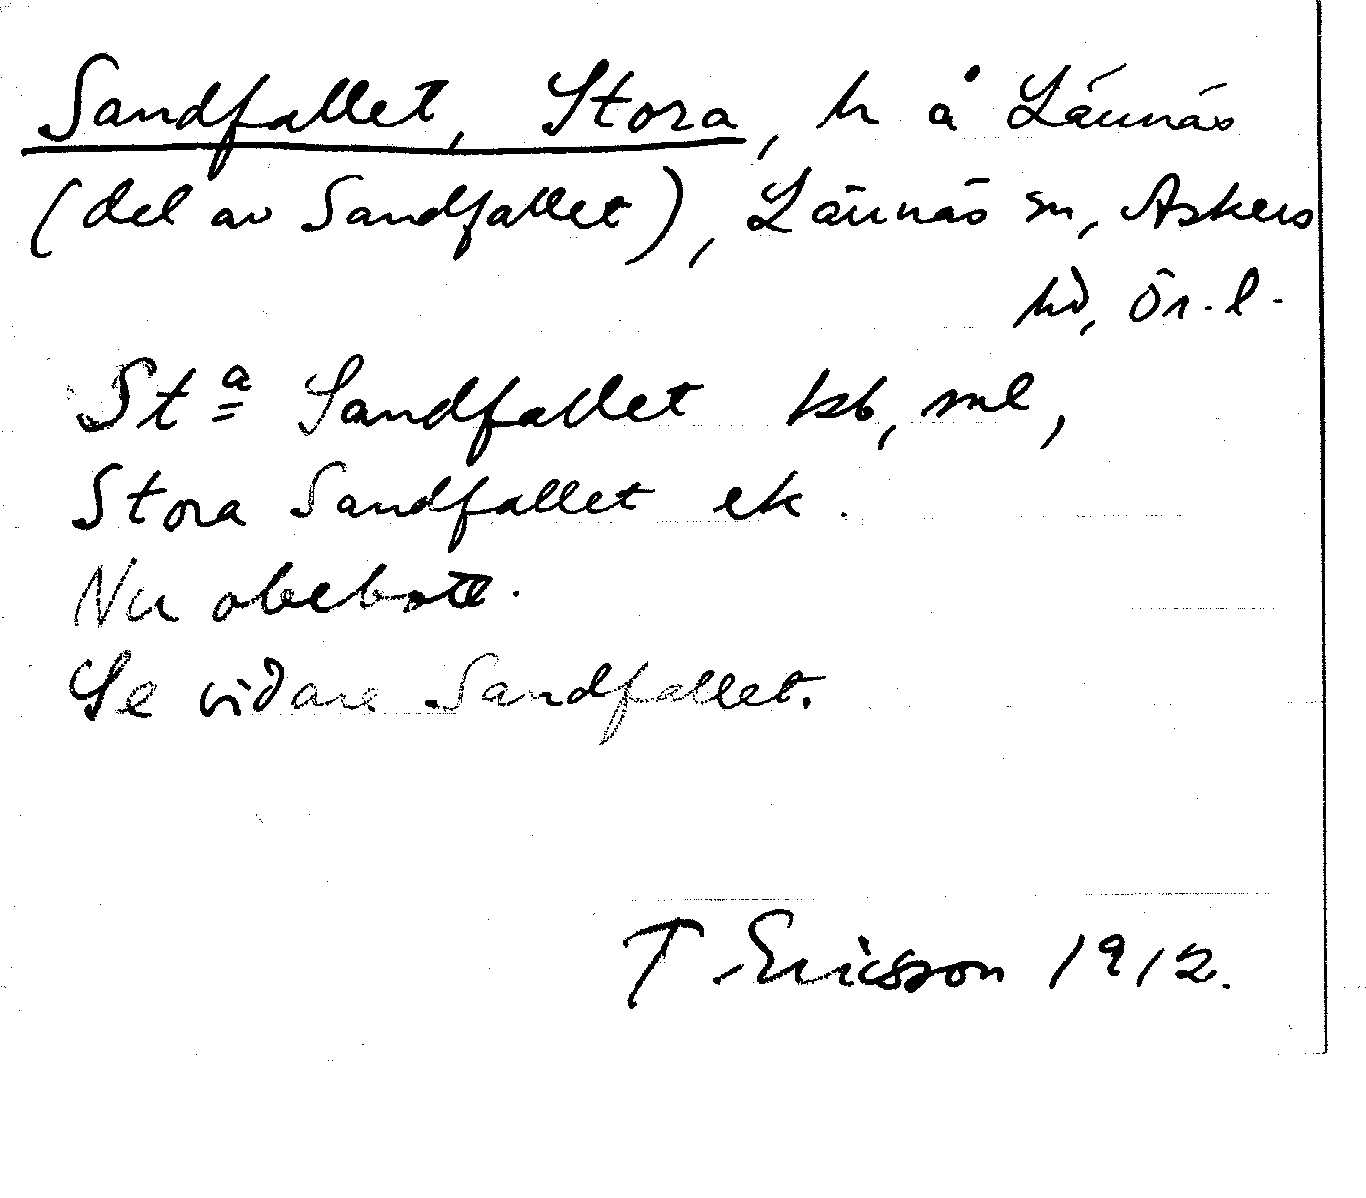 Sandfallet, Stora, h å Lännäs
(del av Sandfallet), Lännäs sn, Askers
hd, Ör. l.
Sta Sandfallet kb, ml,
Stora Sandfallet ek.
Nu obebott.
Se vidare Sandfallet.
T. Ericsson 1912.